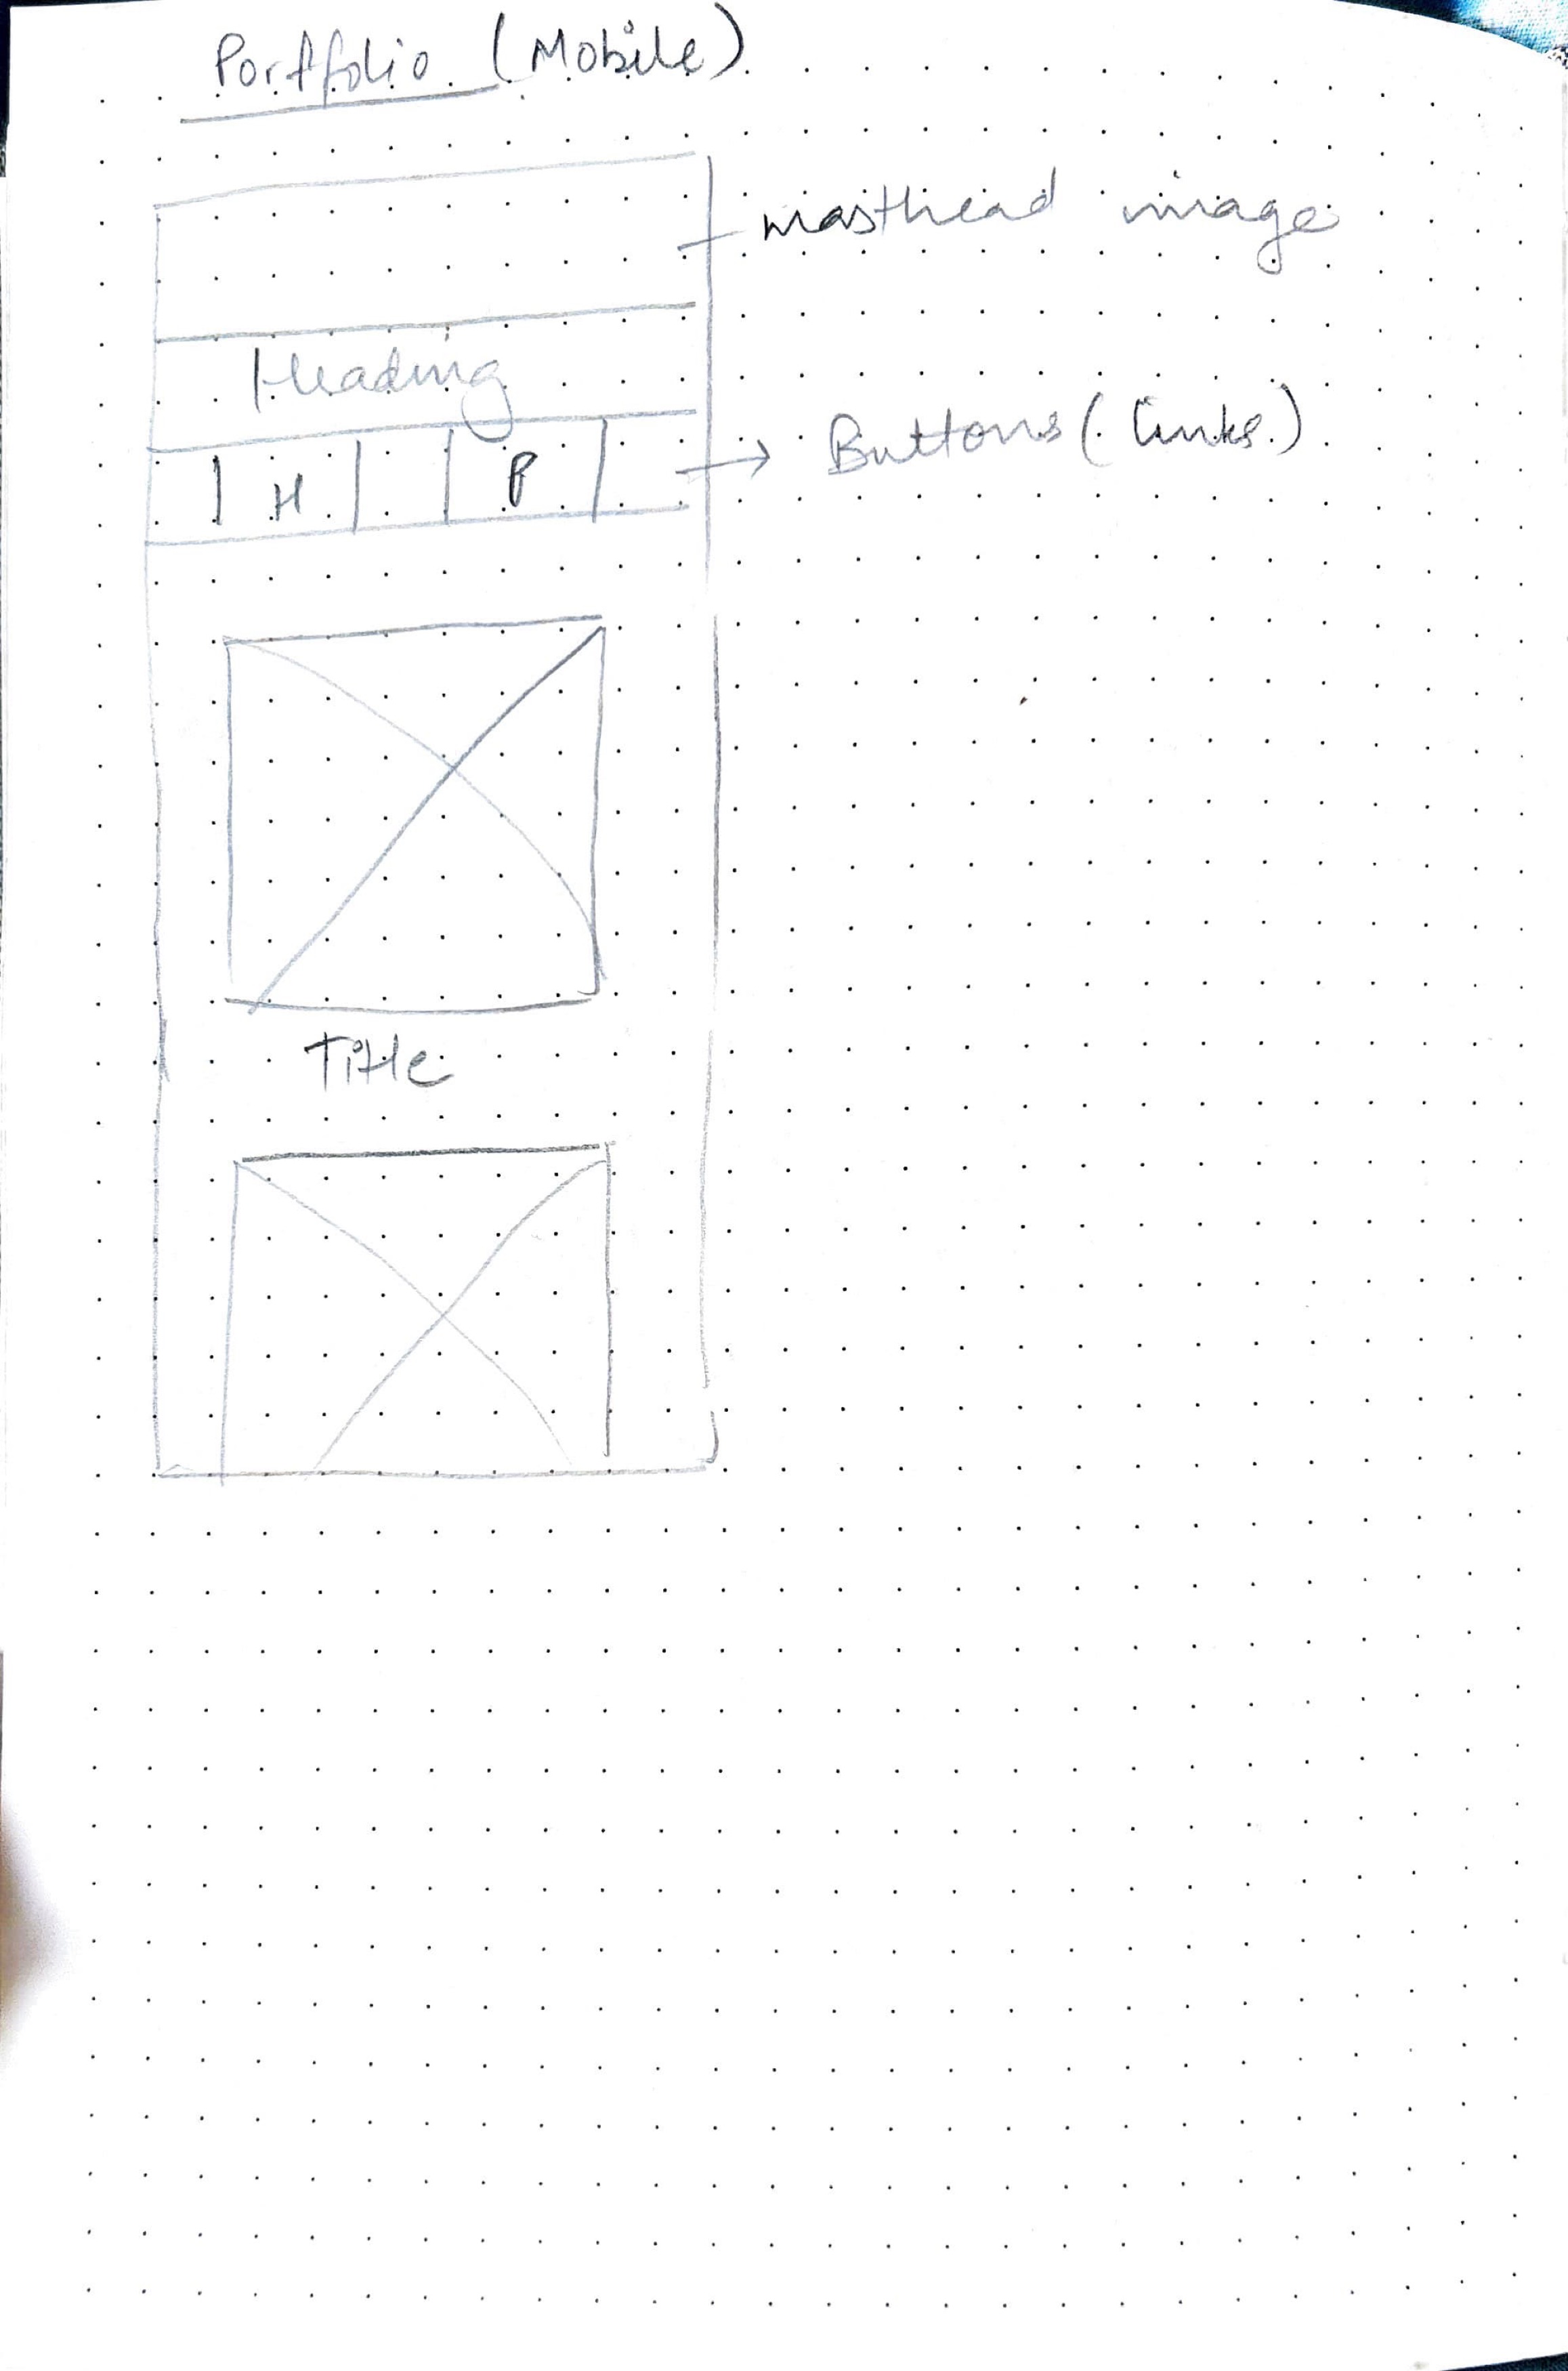 Portfolio (Mobile)
masthead image
Heading
Buttons (links)
H P
Title